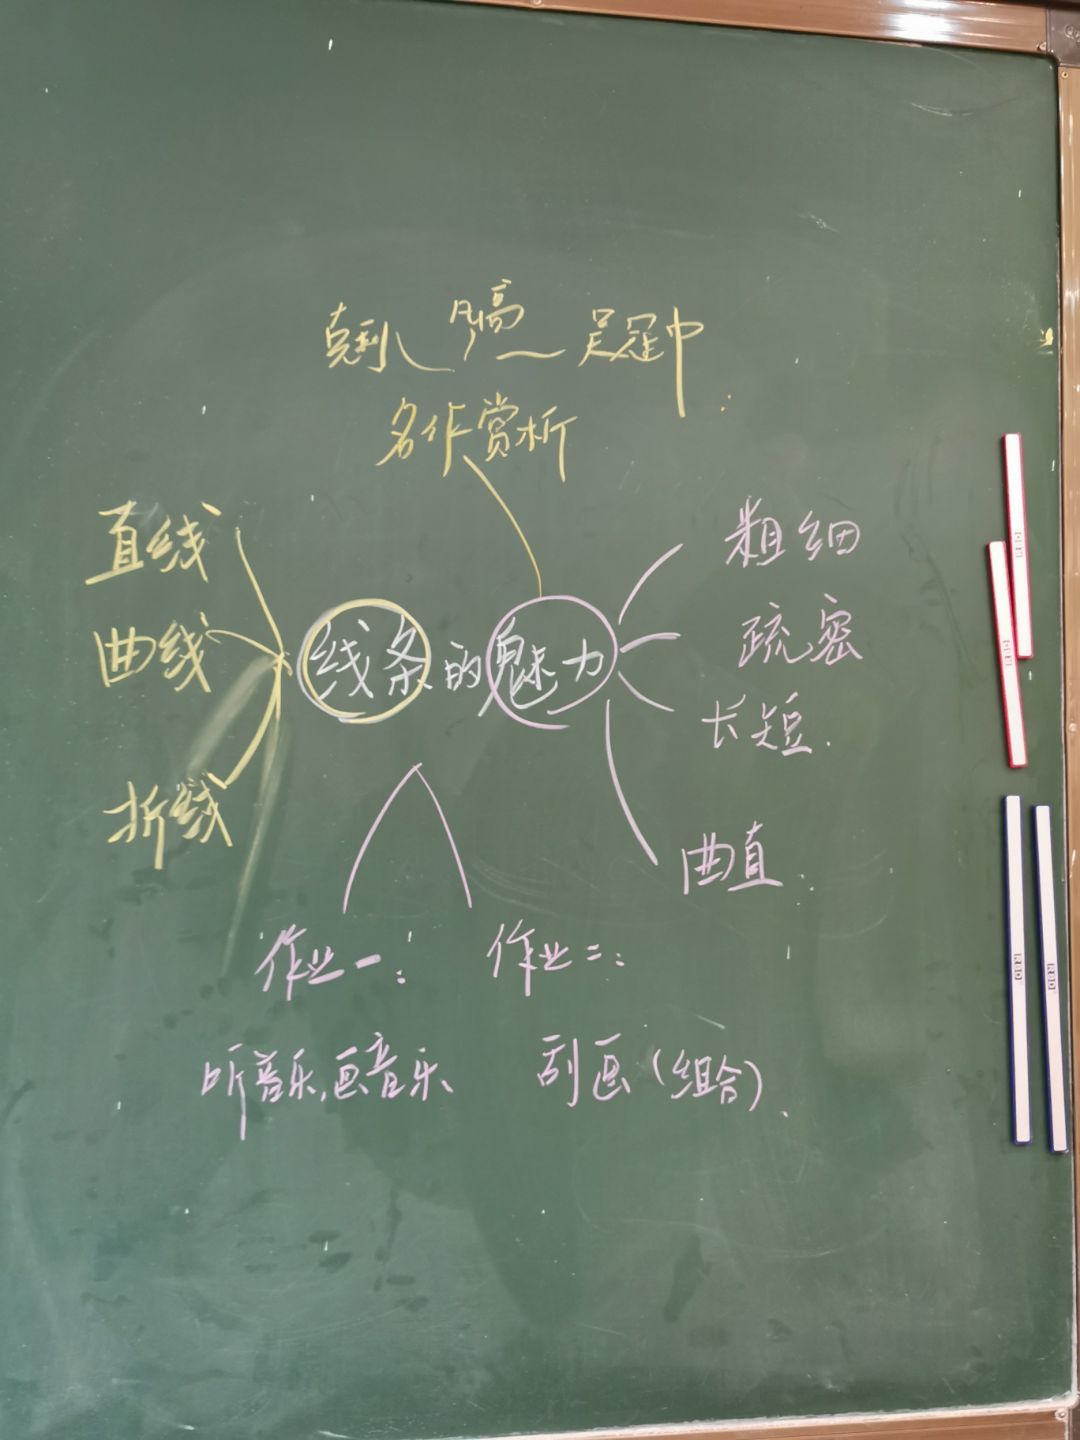 名作赏析
直线
曲线
折线
线条的魅力
粗细
疏密
长短.
曲直.
作业一:
听音乐,画音乐
作业二:
刮画(组合).